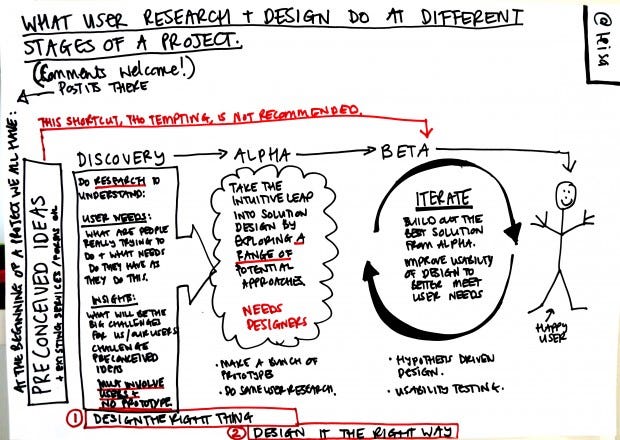 WHAT USER RESEARCH + DESIGN DO AT DIFFERENT
STAGES OF A PROJECT.
(Comments welcome!)
POST ITS THERE
@leisa
AT THE BEGINNING OF A PROJECT WE ALL HAVE:
PRECONCEIVED IDEAS
+ EXISTING SERVICES/FORMS etc
THIS SHORTCUT, THO TEMPTING, IS NOT RECOMMENDED.
DISCOVERY
DO RESEARCH TO
UNDERSTAND:
USER NEEDS:
WHAT ARE PEOPLE
REALLY TRYING TO
DO + WHAT NEEDS
DO THEY HAVE AS
THEY DO THIS.
INSIGHTS:
WHAT WILL BE THE
BIG CHALLENGES
FOR US/OUR USERS
CHALLENGE
PRECONCEIVED
IDEAS
MUST INVOLVE
USERS +
NO PROTOTYPE.
ALPHA
TAKE THE
INTUITIVE LEAP
INTO SOLUTION
DESIGN BY
EXPLORING A
RANGE OF
POTENTIAL
APPROACHES.
NEEDS
DESIGNERS
• MAKE A BUNCH OF
PROTOTYPES
• DO SOME USER RESEARCH.
BETA
ITERATE
BUILD OUT THE
BEST SOLUTION
FROM ALPHA.
IMPROVE USABILITY
OF DESIGN TO
BETTER MEET
USER NEEDS
• HYPOTHESIS DRIVEN
DESIGN.
• USABILITY TESTING.
HAPPY
USER
1 DESIGN THE RIGHT THING
2 DESIGN IT THE RIGHT WAY